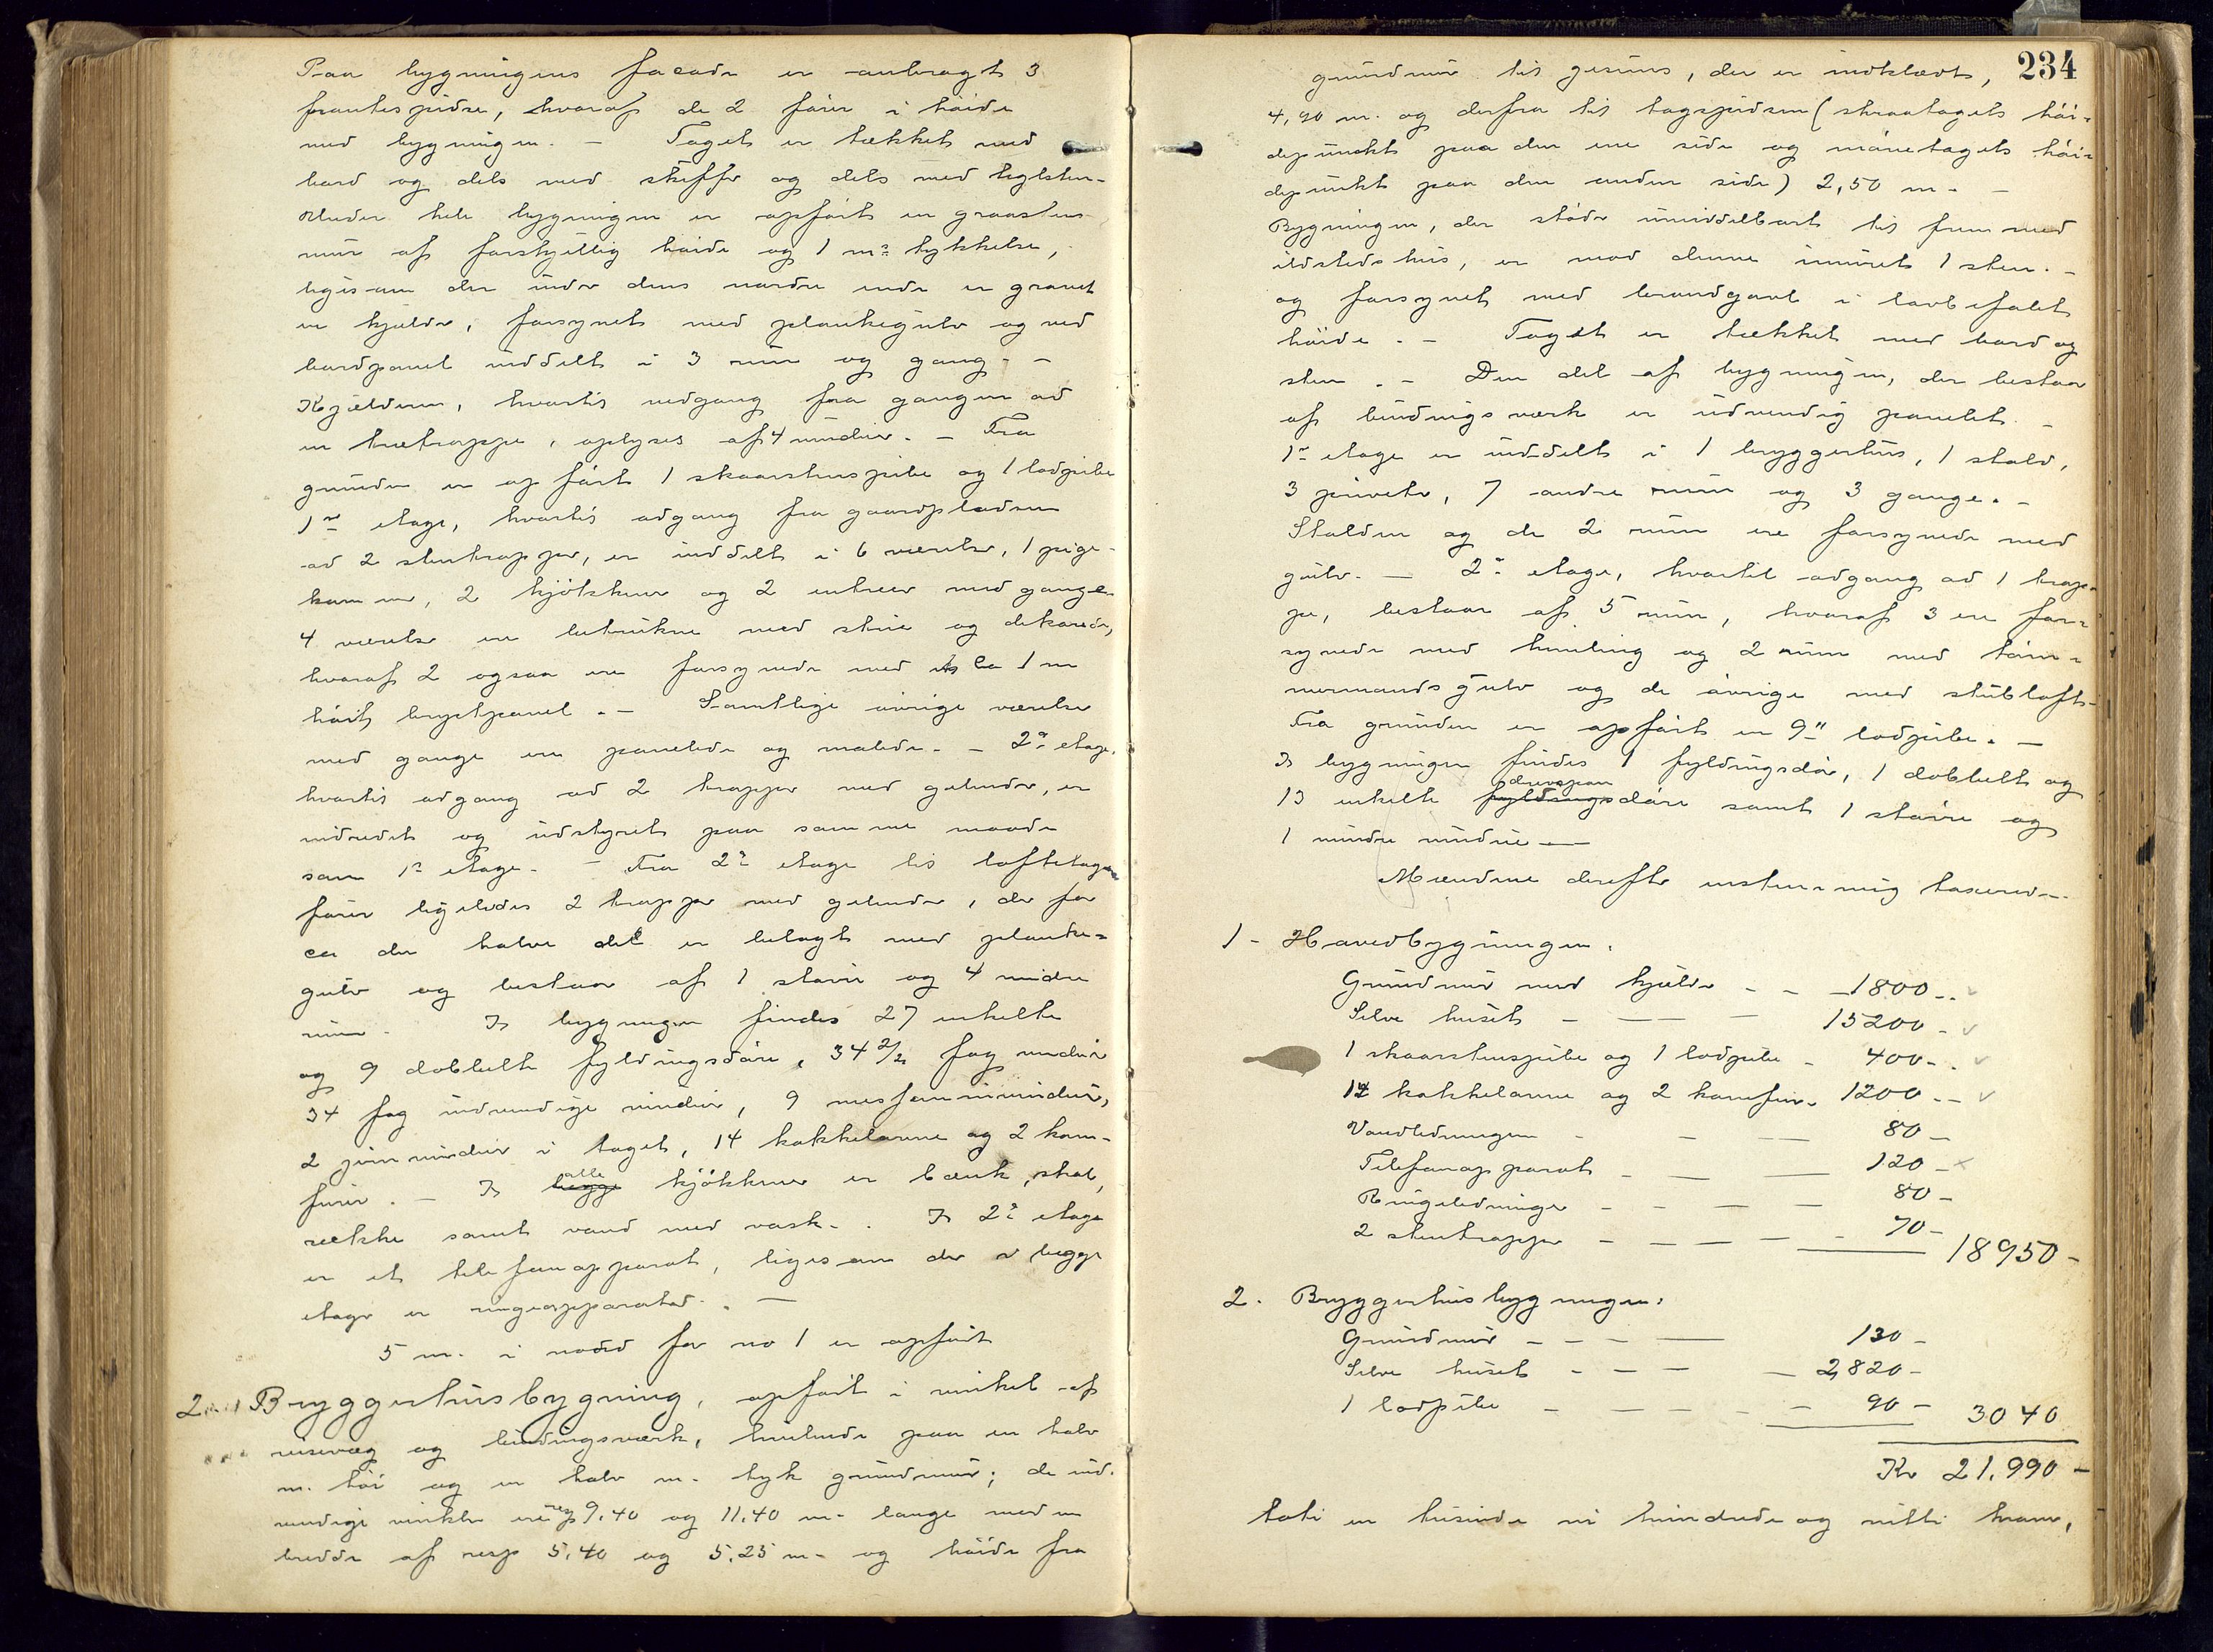 Paa bygningens facade er anbragt 3
frontespidse, hvoraf de 2 fører i høide
med bygningen. — Taget er tækket med
bord og dels med skiffer og dels med teglsten-
Under hele bygningen er opført en graastens
mur af forskjellig høide og 1 m: tykkelse,
ligesom der under dens nordre ende er gravet
en kjelder, forsynet med plankegulv og ved
bordpanel inddelt i 3 rum og gang. —
Kjælderen, hvortil nedgang fra gangen ad
en trætrappe, oplyses af 4 vinduer. — Fra
grunden er opført 1 skorstenspibe og 1 lodpibe
1ste etage, hvortil adgang fra gaardspladsen
ad 2 stentrapper, er inddelt i 6 værelser, 1 pige-
kammer, 2 kjøkkener og 2 entreer med gange
4 værelser ere betrukne med strie og dekorede,
hvoraf 2 ogsaa ere forsynede med et ca 1 m
høit brystpanel. — Samtlige øvrige værelser
med gange ere panelede og malede. — 2den etage,
hvortil adgang ad 2 trapper med gelender, er
indredet og udstyret paa samme maade
som 1ste etage. — Fra 2den etage til loftetagen
fører ligeledes 2 trapper med gelender, der for
ca den halve del er belagt med planke=
gulv og bestaar af 1 større og 4 mindre
rum. I bygningen findes 27 enkelte
og 9 dobbelte fyldingsdøre, 34 2/2 fag vinduer
34 fag indvendige vinduer, 9 mesaninvinduer,
2 jernvinduer i taget, 14 kakkelovne og 2 kom-
furer. — I begge alle kjøkkener er bænk, skab,
række samt vand med vask. . I 2den etage
er et telefonapparat, ligesom der i begge
etager er ringeapparater. —
5 m. i nord for no 1 er opført
2. Bryggerhusbygning, opført i vinkel af
reisværk og bindingsværk, hvilende paa en halv
m. høi og en halv m. tyk grundmur; de ud-
vendige vinkler ere resp 9,40 og 11,40 m. lange med en
bredde af resp 5,40 og 5,25 m. og høide fra
234
grundmur til gesims, der er indklædt,
4,90 m. og derfra til tagspidsen (skraatagets høi=
depunckt paa den ene side og mønetagets høi=
depunkt paa den anden side) 2,50 m. —
Bygningen, der støder umiddelbart til fremmed
ildstedshus, er mod denne inmuret 1 sten. —
og forsynet med brandgavl i lovbefalet
høide. — Taget er tækket med bord og
sten. — Den del af bygningen, der bestaar
af bindingsværk er udvendig panelet. —
1ste etage er inddelt i 1 bryggerhus, 1 stald,
3 priveter, 7 andre rum og 3 gange. —
Stalden og de 2 rum ere forsynede med
gulv. — 2den etage, hvortil adgang ad 1 trap-
pe, bestaar af 5 rum, hvoraf 3 ere for=
synede med himling og 2 rum med tøm=
mermandsgulv og de øvrige med stubloft-
Fra grunden er opført en 9" lodpibe. —
I bygningen findes 1 fyldingsdør, 1 dobbelt og
13 enkelte fyldings døre samt 1 større og
1 mindre vindue —
Mændene derefter enstemmig taxerede.
1 - Hovedbygningen.
Grundmur med kjælder - - — 1800 -
Selve huset - — — 15200 -
1 skorstenspibe og 1 lodpibe - 400 -
14 kakkelovne og 2 komfurer - 1200 -
Vandledningen - - — 80 -
Telefonapparat - — — 120 -
Ringeledninger - - — — 80 -
2 stentrapper - — — — - 70 - 18950 -
2. Bryggerhusbygningen:
Grundmur - - - — 130 -
Selve huset - - — — 2820 -
1 lodpibe - — — - — 90 - 3040
Kr 21.990 -
toti en tusinde ni hundrede og nitti kroner,